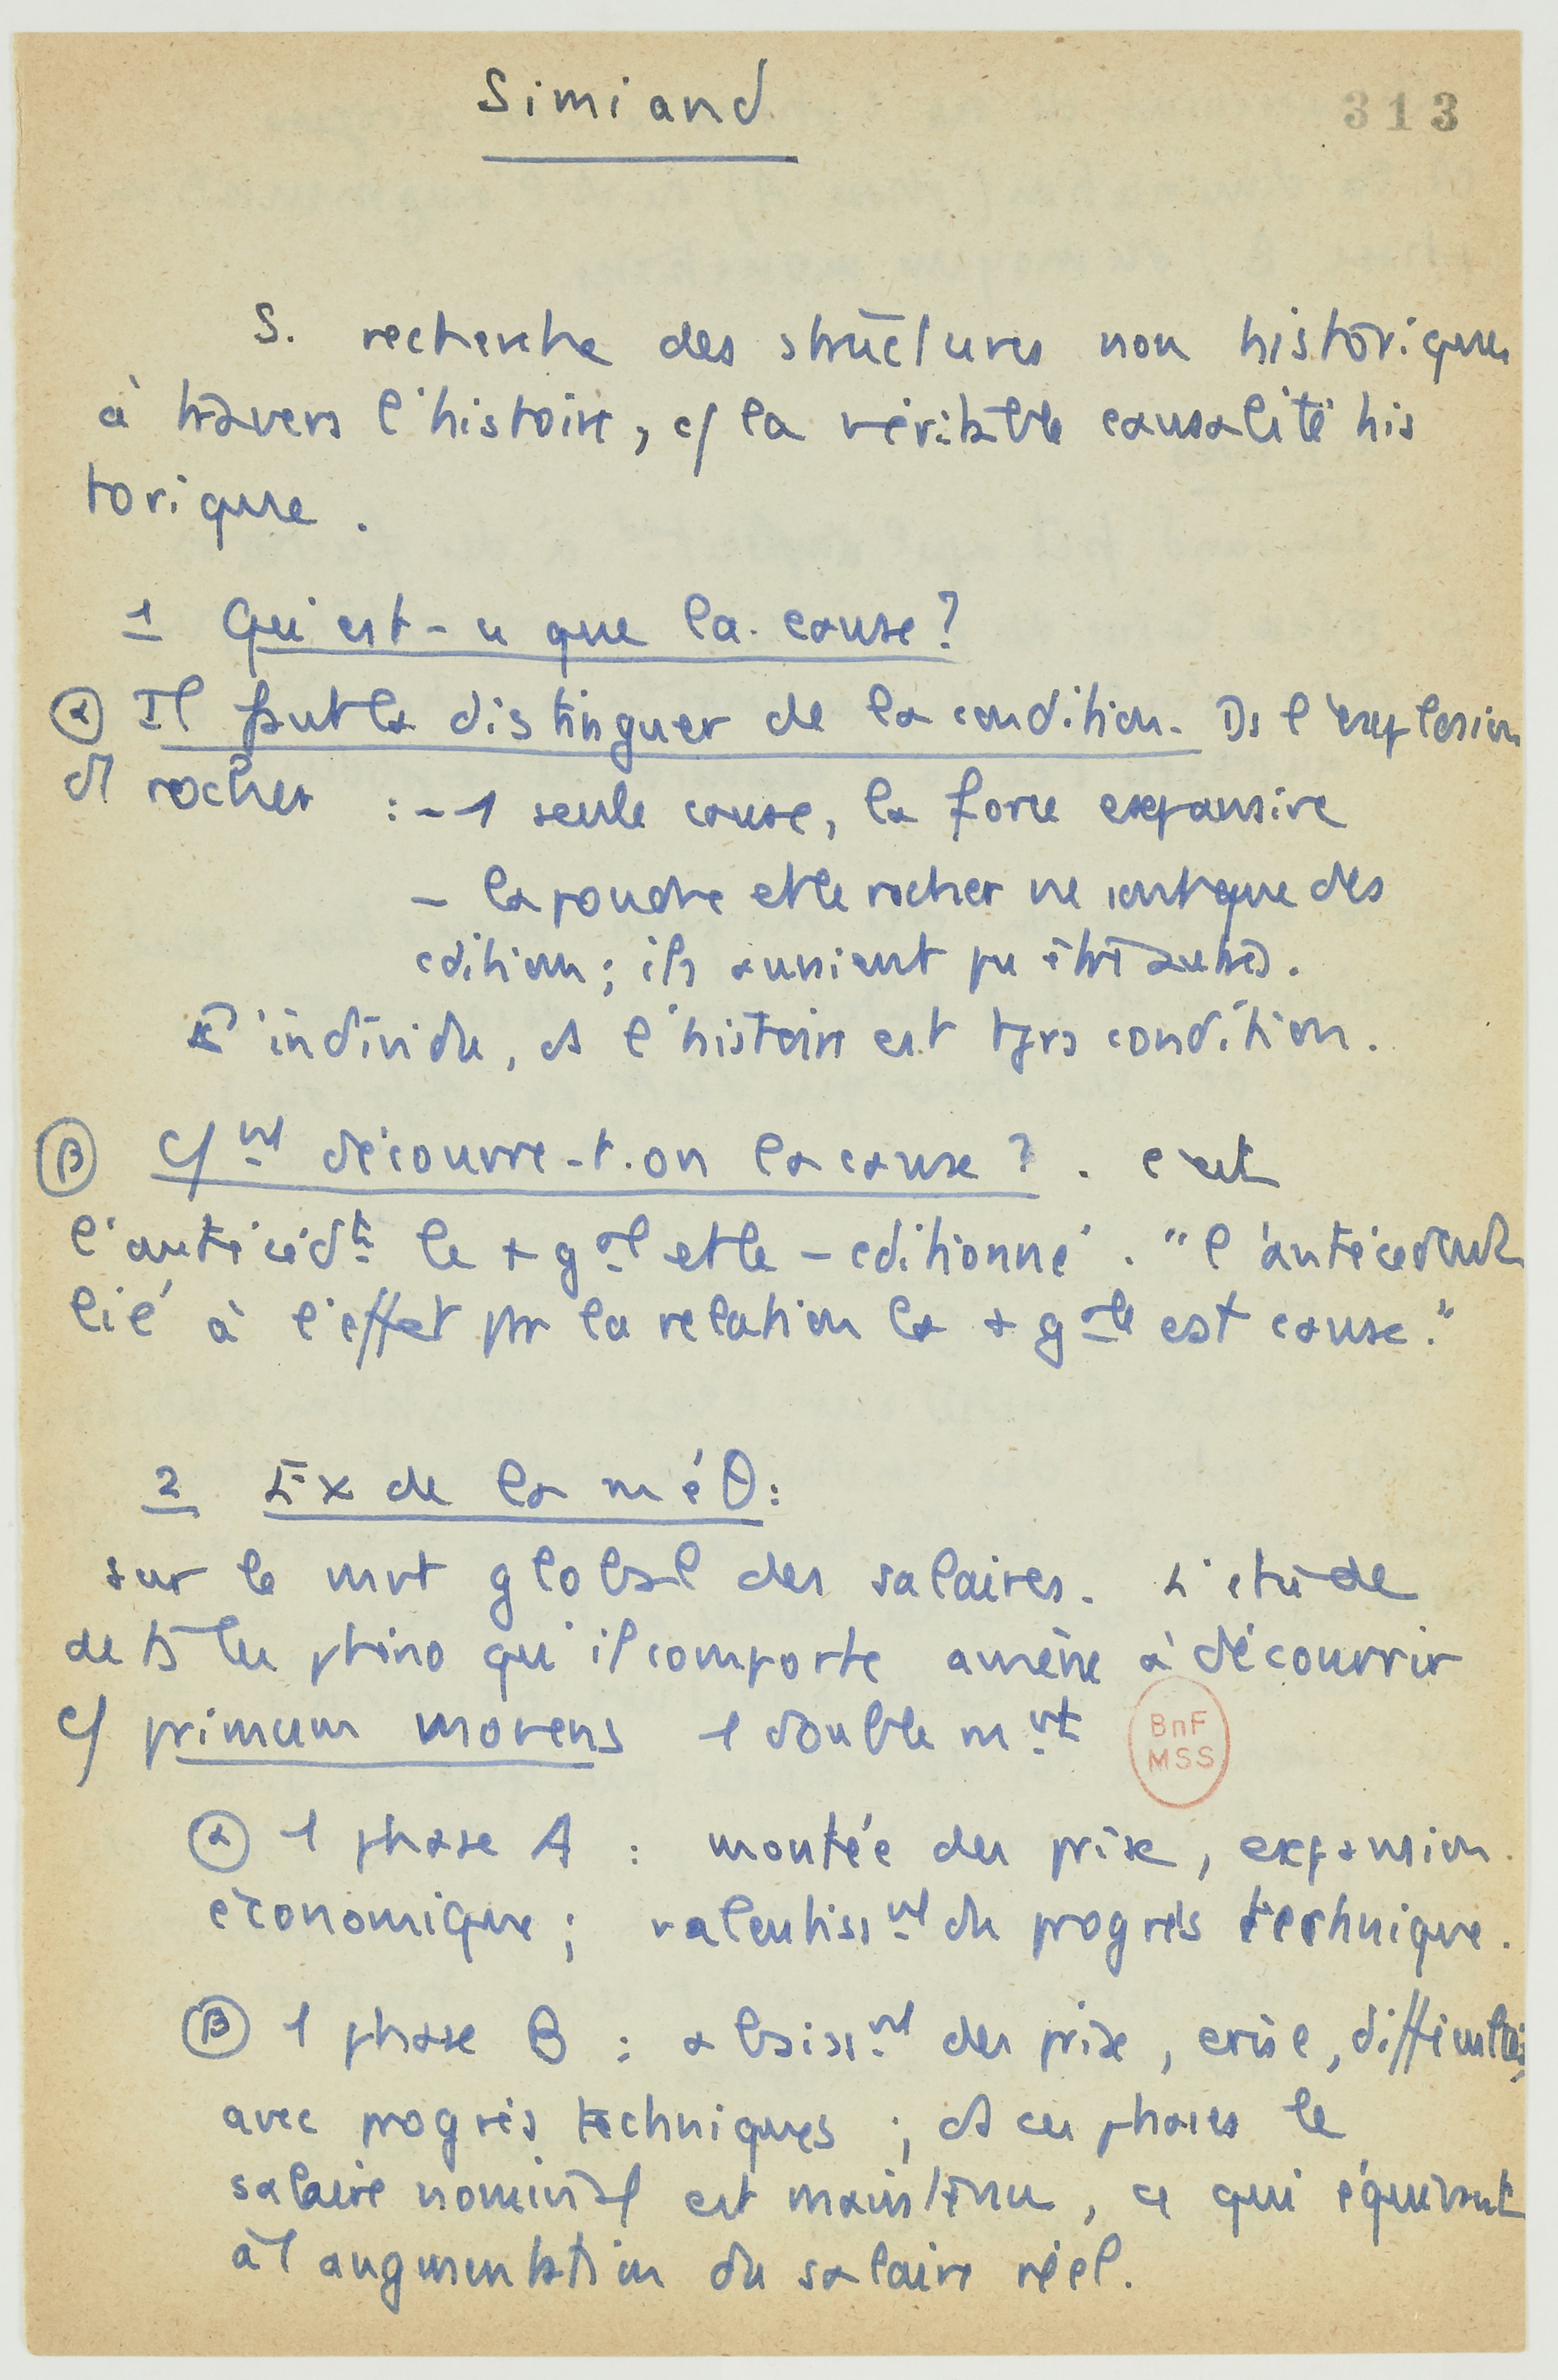 Simiand
313
S. recherche des structures non historiques
à travers l'histoire, c/ la véritable causalité his
torique.
1 Qu'est-ce que la cause?
α Il faut la distinguer de la condition. Ds l'explosion
d'1 rocher : - 1 seule cause, la force expansive
- la poudre et le rocher ne sont que des
cditions; ils auraient pu être autres.
L'individu, ds l'histoire est tjrs condition.
β C/nt découvre-t-on la cause?. c'est
l'antécédt le + gal et le - cditionné. "l'antécédent
lié à l'effet pr la relation la + gale est cause."
2 Ex de la méθ:
sur le mvt global des salaires. L'étude
de ts les phéno qu'il comporte amène à découvrir
c/ primum movens 1 double mvt
BnF
MSS
α 1 phase A : montée des prix, expansion
économique; ralentisst du progrès technique.
β 1 phase B : abaisst des prix, crise, difficultés,
avec progrès techniques; ds ces phases le
salaire nominal est maintenu, ce qui équivaut
à l'augmentation du salaire réel.